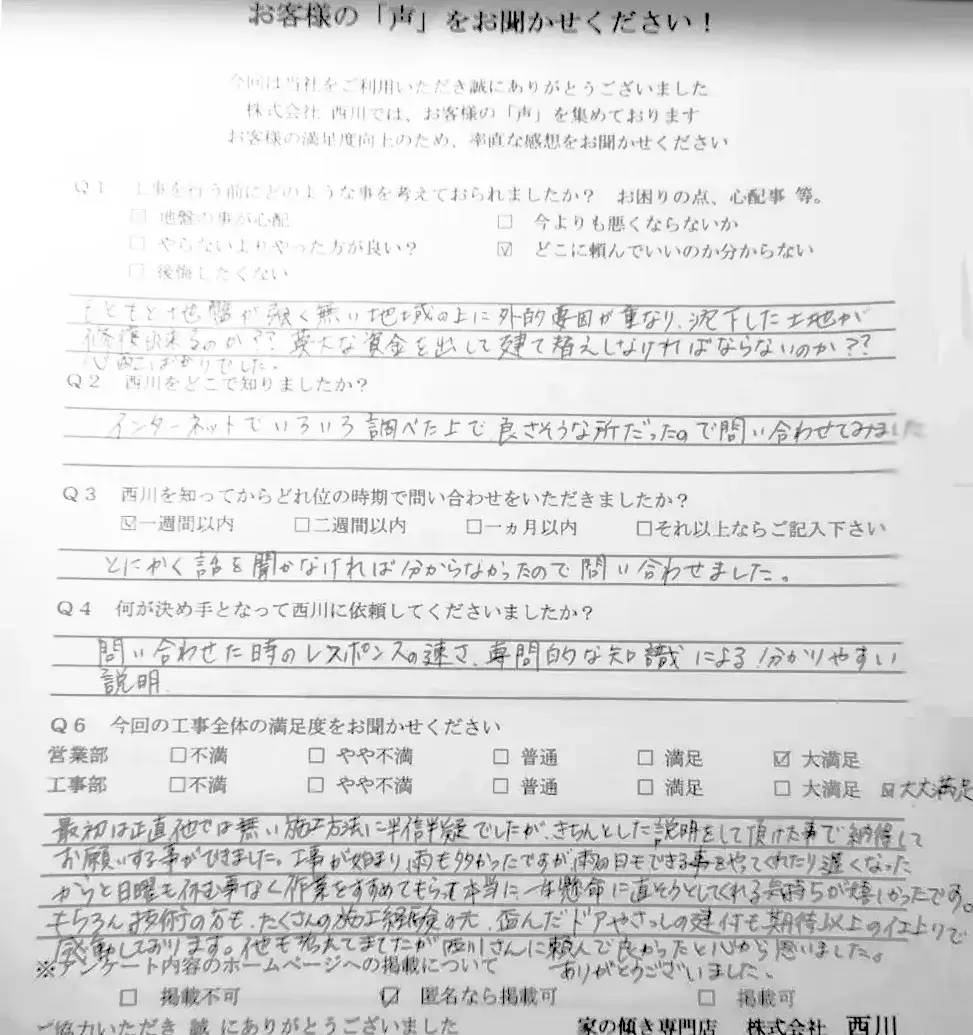 お客様の「声」をお聞かせください！
今回は当社をご利用いただき誠にありがとうございました
株式会社 西川では、お客様の「声」を集めております
お客様の満足度向上のため、率直な感想をお聞かせください
Ｑ１　工事を行う前にどのような事を考えておられましたか？　お困りの点、心配事 等。
□ 地盤の事が心配　□ 今よりも悪くならないか
□ やらないよりやった方が良い？　☑ どこに頼んでいいのか分からない
□ 後悔したくない
もともと地盤が強く無い地域の上に外的要因が重なり、沈下した土地が
修復出来るのか？？莫大な資金を出して建て替えしなければならないのか？？
心配ばかりでした。
Ｑ２　西川をどこで知りましたか？
インターネットでいろいろ調べた上で良さそうな所だったので問い合わせてみました
Ｑ３　西川を知ってからどれ位の時期で問い合わせをいただきましたか？
☑一週間以内　□二週間以内　□一ヵ月以内　□それ以上ならご記入下さい
とにかく話を聞かなければ分からなかったので問い合わせました。
Ｑ４　何が決め手となって西川に依頼してくださいましたか？
問い合わせた時のレスポンスの速さ、専門的な知識による分かりやすい
説明
Ｑ６　今回の工事全体の満足度をお聞かせください
営業部　□不満　□ やや不満　□ 普通　□ 満足　☑ 大満足
工事部　□不満　□ やや不満　□ 普通　□ 満足　□ 大満足　☑大大満足
最初は正直他では無い施工方法に半信半疑でしたが、きちんとした説明をして頂けた事で納得して
お願いする事ができました。工事が始まり雨も多かったですが雨の日もできる事をやってくれたり遅くなった
からと日曜も休む事なく作業をすすめてもらって本当に一生懸命に直そうとしてくれる気持ちが嬉しかったです。
もちろん技術の方も、たくさんの施工経験の元、歪んだドアやさっしの建付も期待以上の仕上りで
感動しております。他も拡大てましたが西川さんに頼んで良かったと心から思いました。
ありがとうございました。
※アンケート内容のホームページへの掲載について
□ 掲載不可　☑ 匿名なら掲載可　□ 掲載可
ご協力いただき 誠 にありがとうございました　家の傾き専門店　株式会社　西川